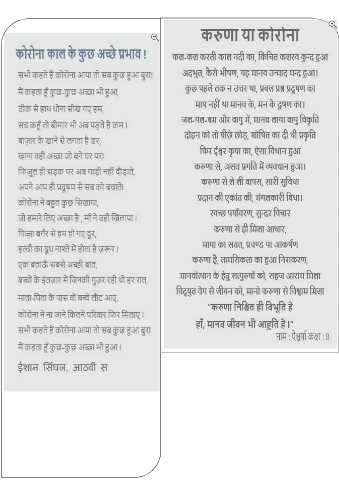 कोरोना काल के कुछ अच्छे प्रभाव !
सभी कहते हैं कोरोना आया तो सब कुछ हुआ बुरा
मैं कहता हूँ कुछ-कुछ अच्छा भी हुआ,
ठीक से हाथ धोना सीख गए हम,
सच कहूँ तो बीमार भी अब पड़ते है कम ।
बाज़ार के खाने से लगता है डर,
खाना वही अच्छा जो बने घर पर।
फिजूल ही सड़क पर अब गाड़ी नहीं दौड़ाते,
अपने आप ही प्रदूषण से सब को बचाते।
कोरोना ने बहुत कुछ सिखाया,
जो हमारे लिए अच्छा है , माँ ने वही खिलाया ।
पिज्जा बर्गर से हम हो गए दूर,
हल्दी का दूध नाश्ते में होता है ज़रूर ।
एक बताऊँ सबसे अच्छी बात,
बच्चों के इंतज़ार में जिनकी गुज़र रही थी हर रात,
माता-पिता के पास वो बच्चे लौट आए,
कोरोना ने ना जाने कितने परिवार फिर मिलाए ।
सभी कहते हैं कोरोना आया तो सब कुछ हुआ बुरा
मैं कहता हूँ कुछ-कुछ अच्छा भी हुआ ।
ईशान सिंघल, आठवीं स
करुणा या कोरोना
कल-कल करती काल नदी का, किंचित कलरव कुन्द हुआ
अदभुत, कैसे भीषण, यह मानव उन्माद मन्द हुआ।
कुछ पहले तक न उत्तर था, प्रबल प्रश्न प्रदूषण का
माप नहीं था मानव के, मन के दूषण का।
जल-थल-नभ और वायु में, मानव लाया वायु विकृति
दोहन को तो पीछे छोड़, शोषित कर दी थी प्रकृति
फिर ईश्वर कृपा का, ऐसा विधान हुआ
करुणा से, असत प्रगति में व्यवधान हुआ।
करुणा से ले ली वापस, सारी सुविधा
प्रदान की एकांत की, मंगलकारी विधा।
स्वच्छ पर्यावरण, सुन्दर विचार
करुणा से ही मिला आधार,
माया का सतत, प्रचण्ड था आकर्षण
करुणा है, तामसिकता का हुआ निराकरण,
मानवोत्थान के हेतु सत्पुरुषों को, सहज आराम मिला
विद्युत वेग से जीवन को, मानो करुणा से विश्राम मिला
"करुणा निश्चित ही विभूति है
हाँ, मानव जीवन भी आहूति है।"
नाम : ऐश्वर्या कक्षा : 8